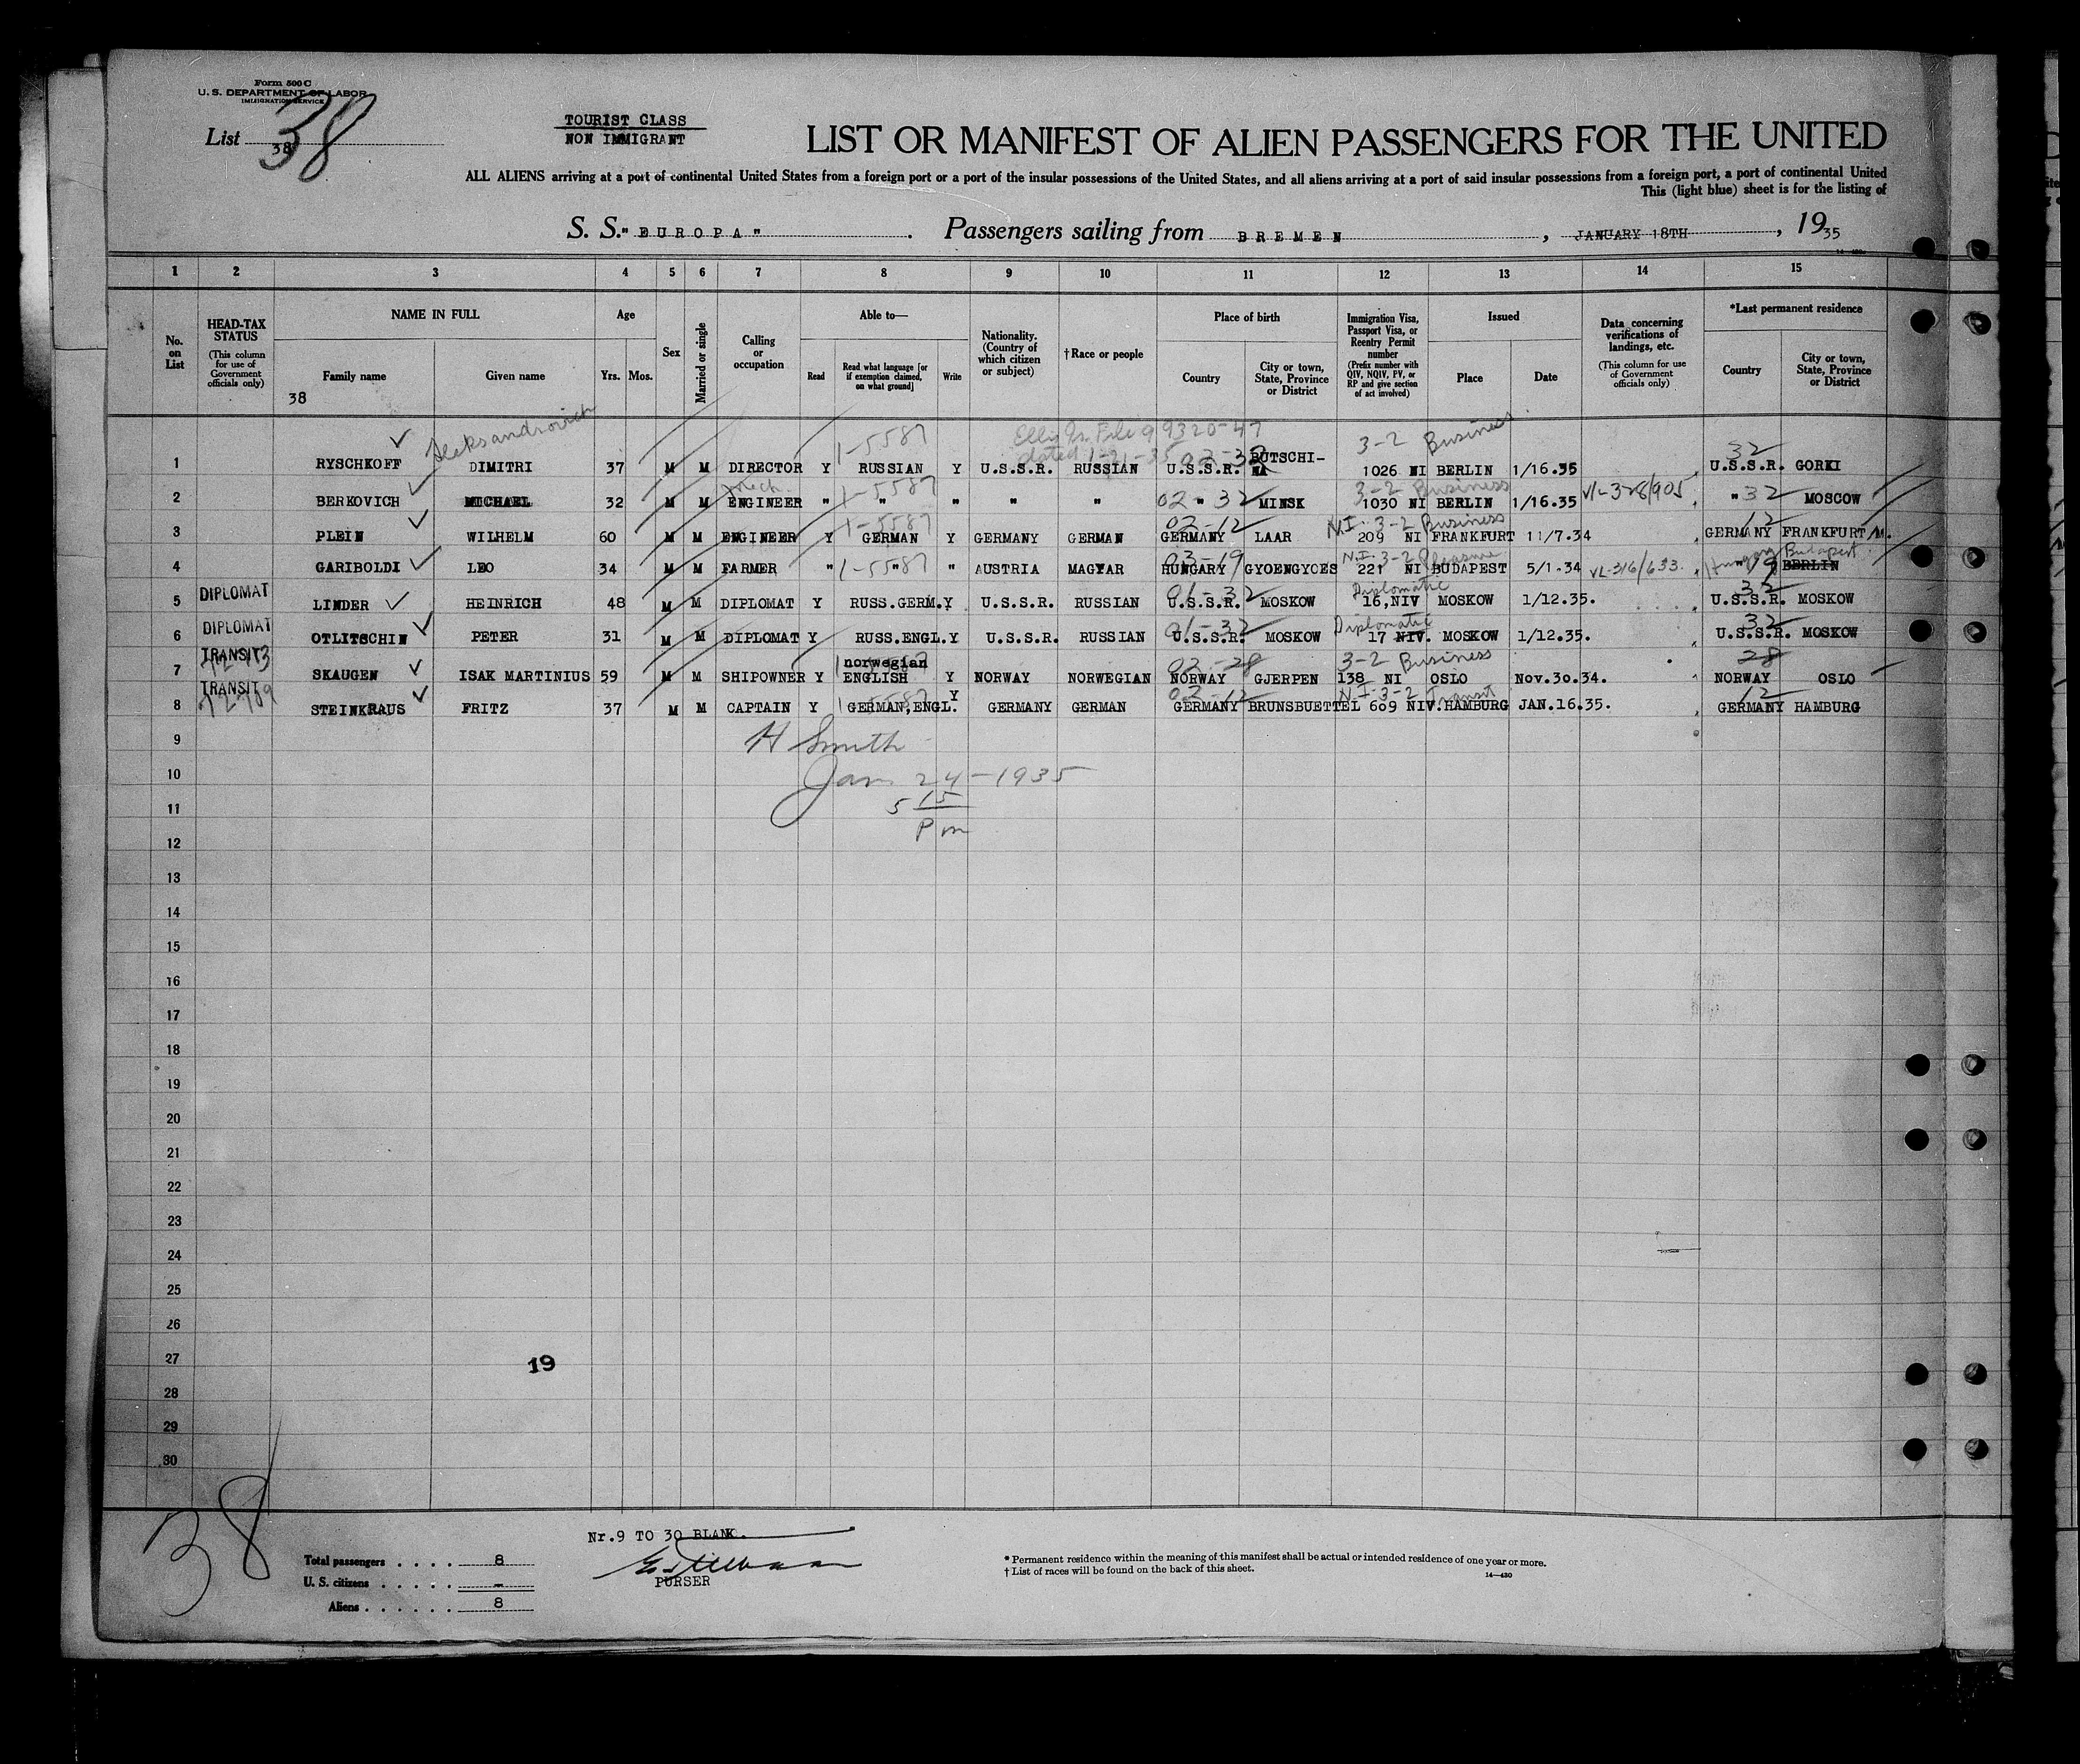 Form 500 C
U. S. DEPARTMENT OF LABOR
IMMIGRATION SERVICE
List 38
38
TOURIST CLASS
NON IMMIGRANT
LIST OR MANIFEST OF ALIEN PASSENGERS FOR THE UNITED
ALL ALIENS arriving at a port of continental United States from a foreign port or a port of the insular possessions of the United States, and all aliens arriving at a port of said insular possessions from a foreign port, a port of continental United
This (light blue) sheet is for the listing of
S. S. "EUROPA". Passengers sailing from BREMEN, JANUARY 18TH, 1935
1 2 3 4 5 6 7 8 9 10 11 12 13 14 15
No. on List
HEAD-TAX STATUS (This column for use of Government officials only)
NAME IN FULL
Family name
Given name
38
Age
Yrs. Mos.
Sex
Married or single
Calling or occupation
Able to—
Read
Read what language [or if exemption claimed, on what ground]
Write
Nationality. (Country of which citizen or subject)
†Race or people
Place of birth
Country
City or town, State, Province or District
Immigration Visa, Passport Visa, or Reentry Permit number (Prefix number with QIV, NQIV, PV, or RP and give section of act involved)
Issued
Place
Date
Data concerning verifications of landings, etc. (This column for use of Government officials only)
*Last permanent residence
Country
City or town, State, Province or District
Aleksandrovich 1-5587 Ellis Is. File 99320-47 3-2 Business
dated 1-21-35 02-32 32
1 RYSCHKOFF DIMITRI 37 M M DIRECTOR Y RUSSIAN Y U.S.S.R. RUSSIAN U.S.S.R. RUTSCHI-NA 1026 NI BERLIN 1/16.35 U.S.S.R. GORKI
mech. 1-5587 3-2 Business
2 BERKOVICH MICHAEL 32 M M ENGINEER " " " " " 02 " 32 MINSK 1030 NI BERLIN 1/16.35 VL-328/905 " 32 MOSCOW
1-5587 02-12 N.I. 3-2 Business 12
3 PLEIN WILHELM 60 M M ENGINEER Y GERMAN Y GERMANY GERMAN GERMANY LAAR 209 NI FRANKFURT 11/7.34 GERMANY FRANKFURT/M.
1-5587 03-19 N.I. 3-2 Pleasure Hungary Budapest
4 GARIBOLDI LEO 34 M M FARMER " " " AUSTRIA MAGYAR HUNGARY GYOENGYOES 221 NI BUDAPEST 5/1.34 VL-316/633. " 19 BERLIN
DIPLOMAT 01-32 Diplomatic 32
5 LINDER HEINRICH 48 M M DIPLOMAT Y RUSS.GERM. Y U.S.S.R. RUSSIAN U.S.S.R. MOSKOW 16,NIV MOSKOW 1/12.35. U.S.S.R. MOSKOW
DIPLOMAT 01-32 Diplomatic 32
6 OTLITSCHIN PETER 31 M M DIPLOMAT Y RUSS.ENGL. Y U.S.S.R. RUSSIAN U.S.S.R. MOSKOW 17 NIV. MOSKOW 1/12.35. U.S.S.R. MOSKOW
TRANSIT norwegian 02-28 3-2 Business 28
7 SKAUGEN ISAK MARTINIUS 59 M M SHIPOWNER Y ENGLISH Y NORWAY NORWEGIAN NORWAY GJERPEN 138 NI OSLO Nov.30.34. NORWAY OSLO
TRANSIT 1-5587 02-12 N.I-3-2 Transit 12
8 STEINKRAUS FRITZ 37 M M CAPTAIN Y GERMAN,ENGL. Y GERMANY GERMAN GERMANY BRUNSBUETTEL 609 NIV. HAMBURG JAN.16.35. GERMANY HAMBURG
9 H Smith
10 Jan 24-1935
11 5 15
12 Pm
13
14
15
16
17
18
19
20
21
22
23
24
25
26
27
19
28
29
30
38
Nr.9 TO 30 BLANK.
PURSER
Total passengers . . . . 8
U. S. citizens . . . . . -
Aliens . . . . . . 8
* Permanent residence within the meaning of this manifest shall be actual or intended residence of one year or more.
† List of races will be found on the back of this sheet.
14—430